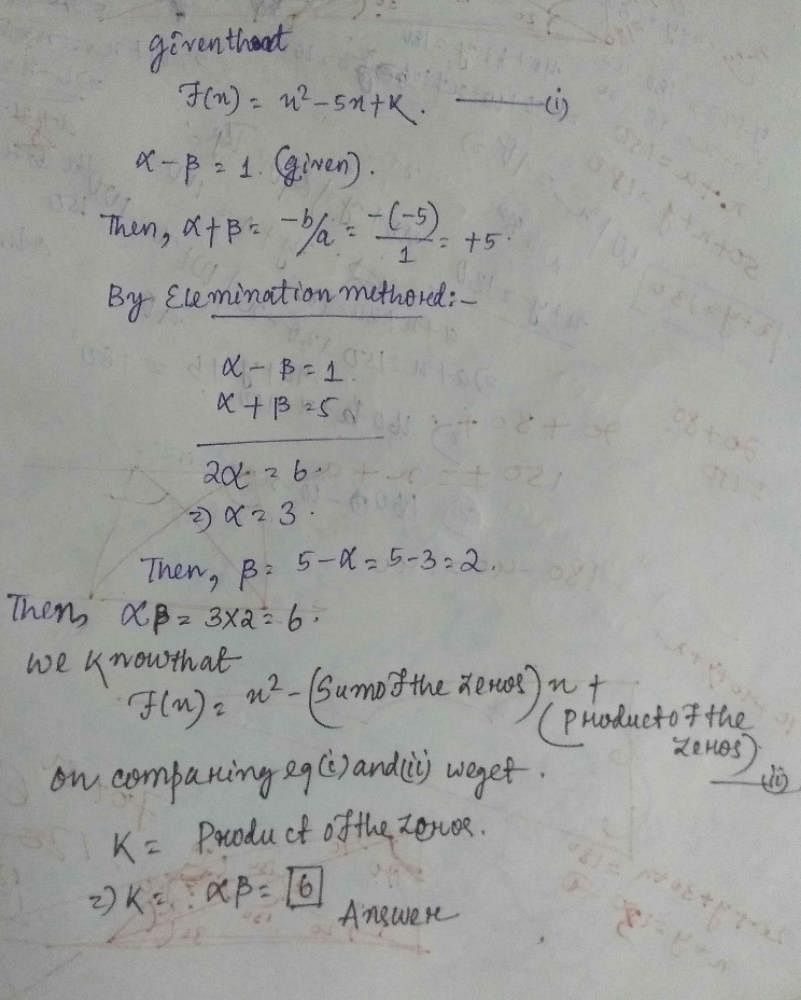 giventhat
F(x) = x² - 5x + K. ——— (i)
α - β = 1 (given).
Then, α + β = -b/a = -(-5)/1 = +5.
By Elemination methored:-
α - β = 1
α + β = 5
2α = 6.
=) α = 3.
Then, β = 5 - α = 5 - 3 = 2.
Then, αβ = 3×2 = 6.
we Knowthat
F(x) = x² - (Sum of the zeros) x +
(Product of the
zeros) —— (ii)
on comparing eq (i) and (ii) we get.
K = Product of the zeros.
=) K = αβ = 6
Answer